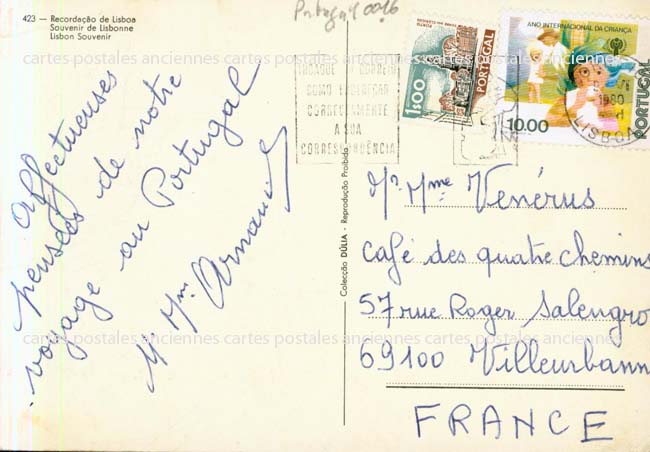 423 — Recordação de Lisboa
Souvenir de Lisbonne
Lisbon Souvenir
Portugal 0016
cartes postales anciennes cartes postales anciennes cartes postales anciennes
Affectueuses
pensées de notre
voyage au Portugal
M Mme Arnaud
CORRECTAMENTE
A SUA
CORRESPONDÊNCIA
1$00
PORTUGAL
ANO INTERNACIONAL DA CRIANÇA
10.00
PORTUGAL
1980
LISBOA
Colecção DÚLIA - Reprodução Proibida
Mr Mme Venérus
café des quatre chemins
57 rue Roger Salengro
cartes postales anciennes cartes postales anciennes cartes postales anciennes
69100 Villeurbann
FRANCE